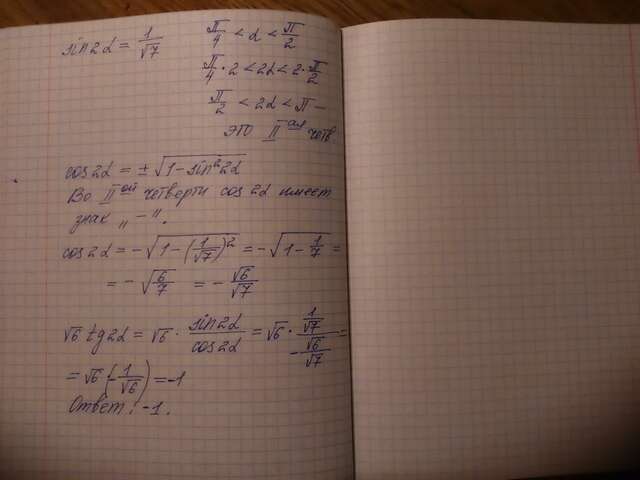 sin2α = 1/√7
π/4 < α < π/2
π/4 · 2 < 2α < 2 · π/2
π/2 < 2α < π —
это II ая четв
cos2α = ± √(1 - sin²2α)
Во II ой четверти cos 2α имеет
знак „ - ".
cos2α = - √(1 - (1/√7)²) = - √(1 - 1/7) =
= - √(6/7) = - √6/√7
√6 tg2α = √6 · sin2α/cos2α = √6 · (1/√7)/(-√6/√7) =
= √6 (-1/√6) = -1
Ответ: -1.